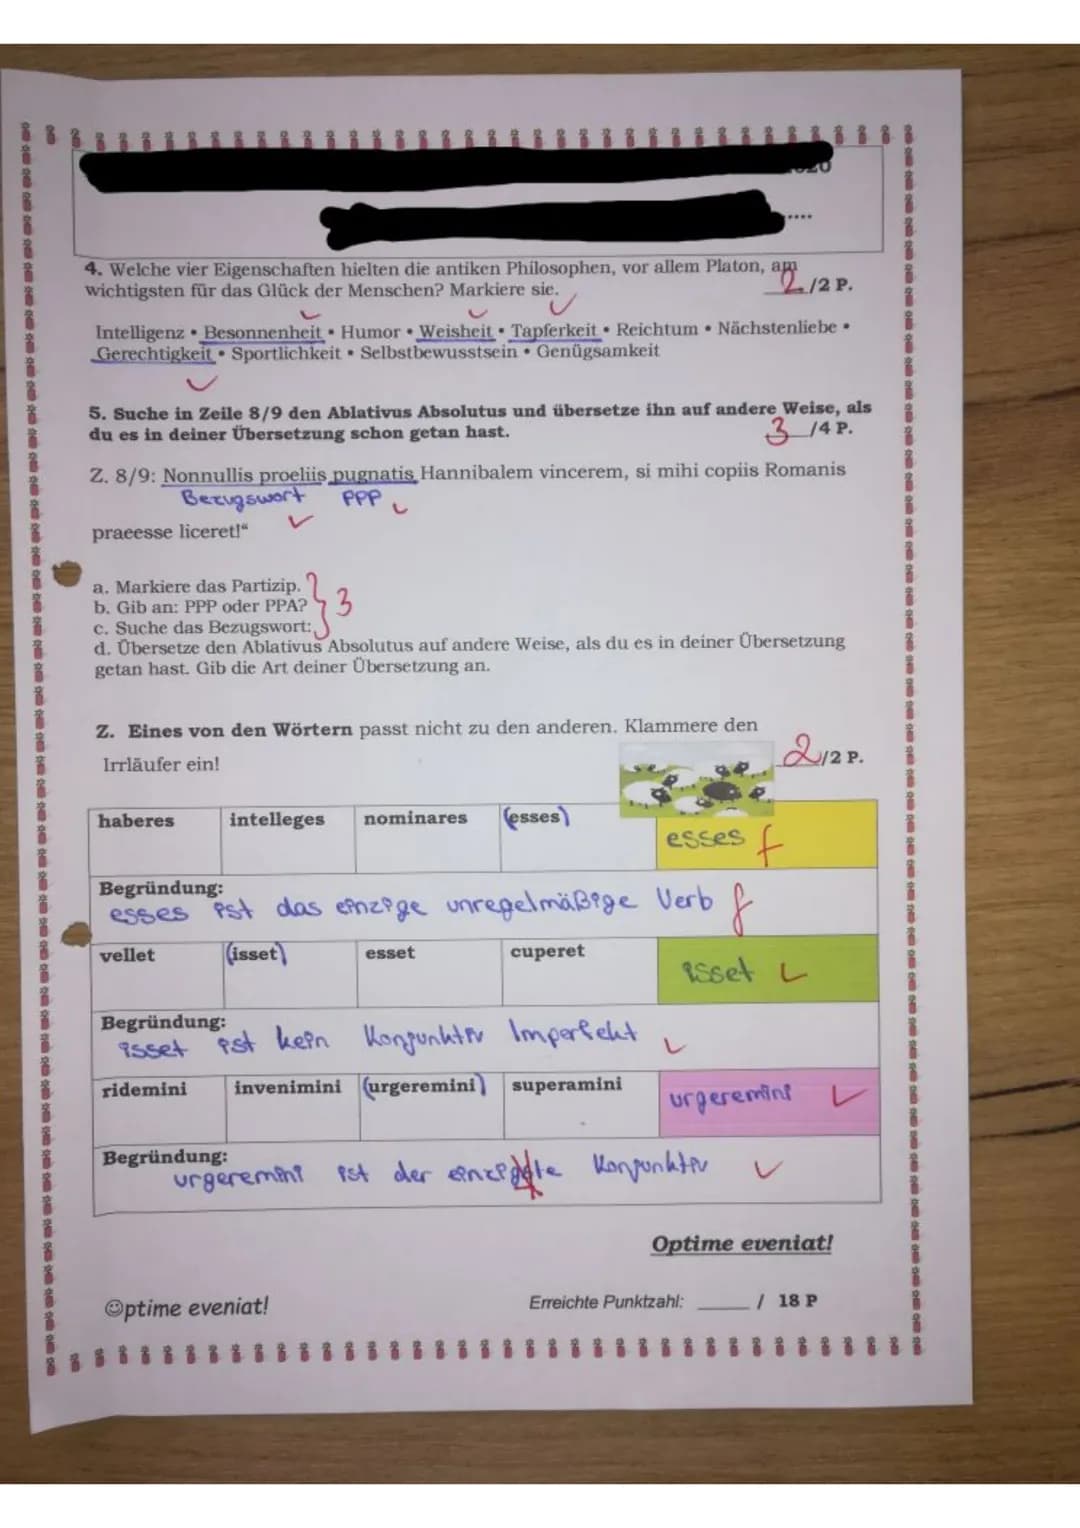 4. Welche vier Eigenschaften hielten die antiken Philosophen, vor allem Platon, am
wichtigsten für das Glück der Menschen? Markiere sie. 2/2 P.
Intelligenz • Besonnenheit • Humor • Weisheit • Tapferkeit • Reichtum • Nächstenliebe •
Gerechtigkeit • Sportlichkeit • Selbstbewusstsein • Genügsamkeit
5. Suche in Zeile 8/9 den Ablativus Absolutus und übersetze ihn auf andere Weise, als
du es in deiner Übersetzung schon getan hast. 3/4 P.
Z. 8/9: Nonnullis proeliis pugnatis Hannibalem vincerem, si mihi copiis Romanis
Bezugswort PPP
praeesse liceret!“
a. Markiere das Partizip.
b. Gib an: PPP oder PPA? 3
c. Suche das Bezugswort:
d. Übersetze den Ablativus Absolutus auf andere Weise, als du es in deiner Übersetzung
getan hast. Gib die Art deiner Übersetzung an.
Z. Eines von den Wörtern passt nicht zu den anderen. Klammere den
Irrläufer ein! 2/2 P.
haberes intelleges nominares (esses) esses f
Begründung:
esses ist das einzige unregelmäßige Verb f
vellet (isset) esset cuperet isset
Begründung:
isset ist kein Konjunktiv Imperfekt
ridemini invenimini (urgeremini) superamini urgeremini
Begründung:
urgeremini ist der Konjunktiv
Optime eveniat!
☺ptime eveniat! Erreichte Punktzahl: ____ / 18 P